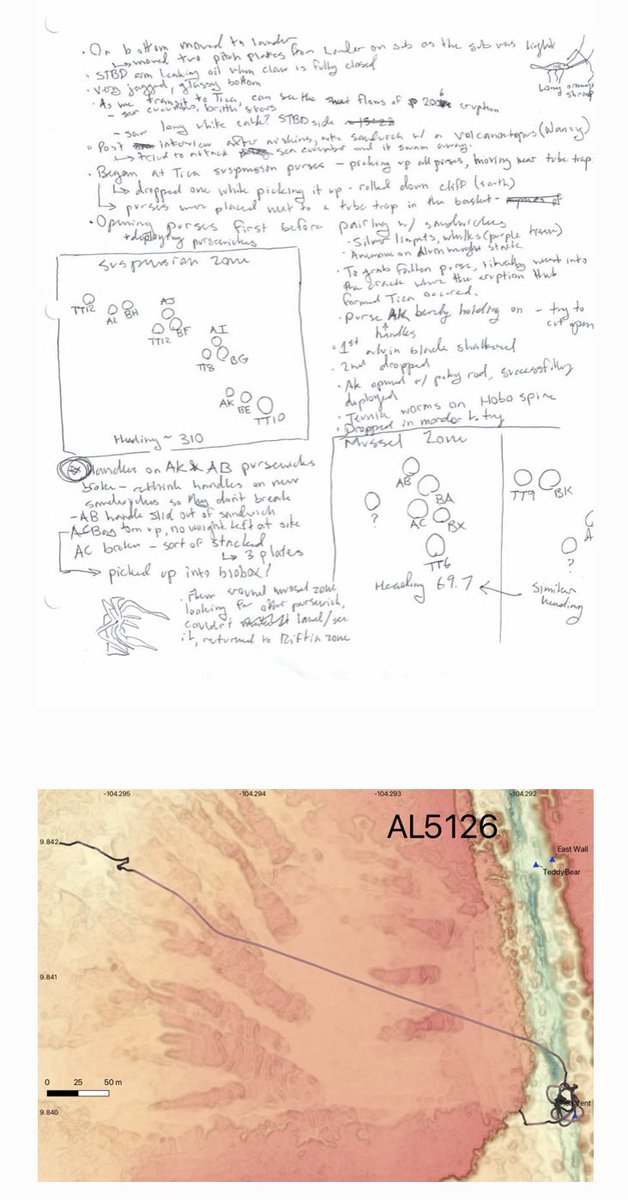 • On bottom moved to lander
↳ moved two pitch plates from lander on sub as the sub was light
• STBD arm leaking oil when claw is fully closed
• very jagged, glassy bottom
• As we transit to Tica, can see the flows of 2006 eruption
- saw cucumbers, brittle stars
- saw long white STBD side
Long armed shrimp
• Post interview after sandwich w/ a (Nancy)
↳ tried to attack sea cucumber and it swam away.
• Began at Tica suspension purses - picking up all purses, moving near tube trap
↳ dropped one while picking it up - rolled down cliff (south)
↳ purses were placed next to a tube trap in the basket -
• Opening purses first before pairing w/ sandwiches
+ deploying
• Silver limpets, whelks (purple)
• Anemone on Alvin weight stack
• To grab fallen purse, literally went into the crack where the eruption that formed Tica occurred.
• Purse AK barely holding on - try to cut open
↑ handles
• 1st alvin blade shattered
• 2nd dropped
• AK opened w/ pokey rod, successfully deployed
• Tevnia worms on Hobo spire
• Dropped in
Suspension Zone
TT12
AL
BH
AJ
TT12
BF
AI
TT8
BG
AK
BE
TT10
Heading ~ 310
Handles on AK & AB
broke - rethink handles on new
so they don't break
- AB handle slid out of sandwich
AC Bag torn up, no weight. Left at site
AC broken - sort of stacked
↳ 3 plates
→ picked up into biobox!
Mussel Zone
AB
BA
?
AC
BX
TT6
Heading 69.7
TT9
BK
?
A
Similar heading
• Flew around mussel zone
looking for other
couldn't land/see
it, returned to Riftia zone
-104.295
-104.294
-104.293
-104.292
AL5126
9.842
East Wall
TeddyBear
9.841
0 25 50 m
9.840